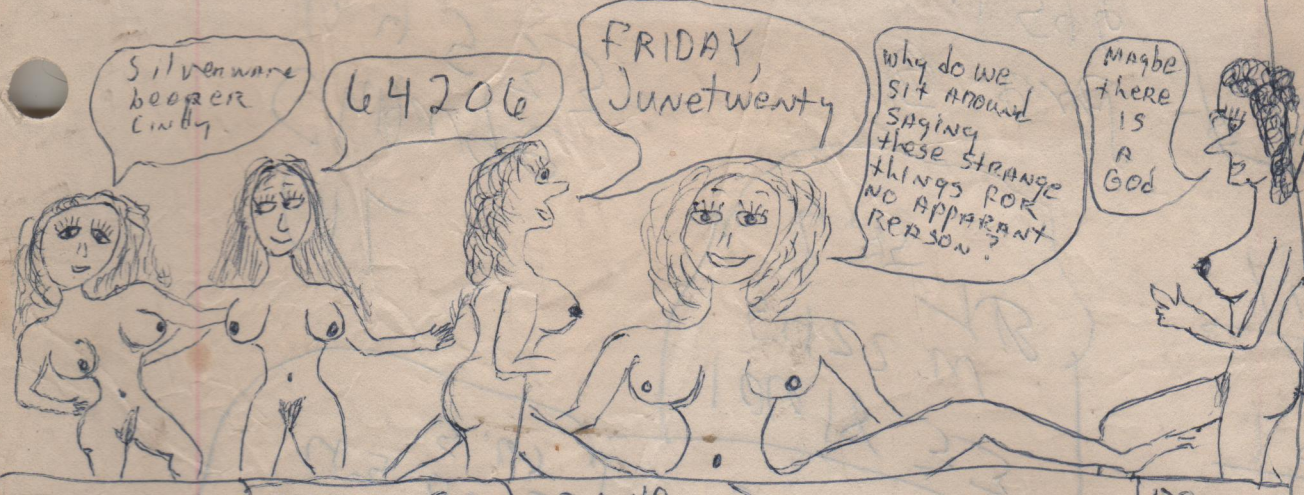 Silverware
beeper
Cindy
64206
FRIDAY,
Junetwenty
why do we
sit around
saying
these STRANGE
things FOR
NO APPARANT
REASON?
Maybe
there
IS
A
God